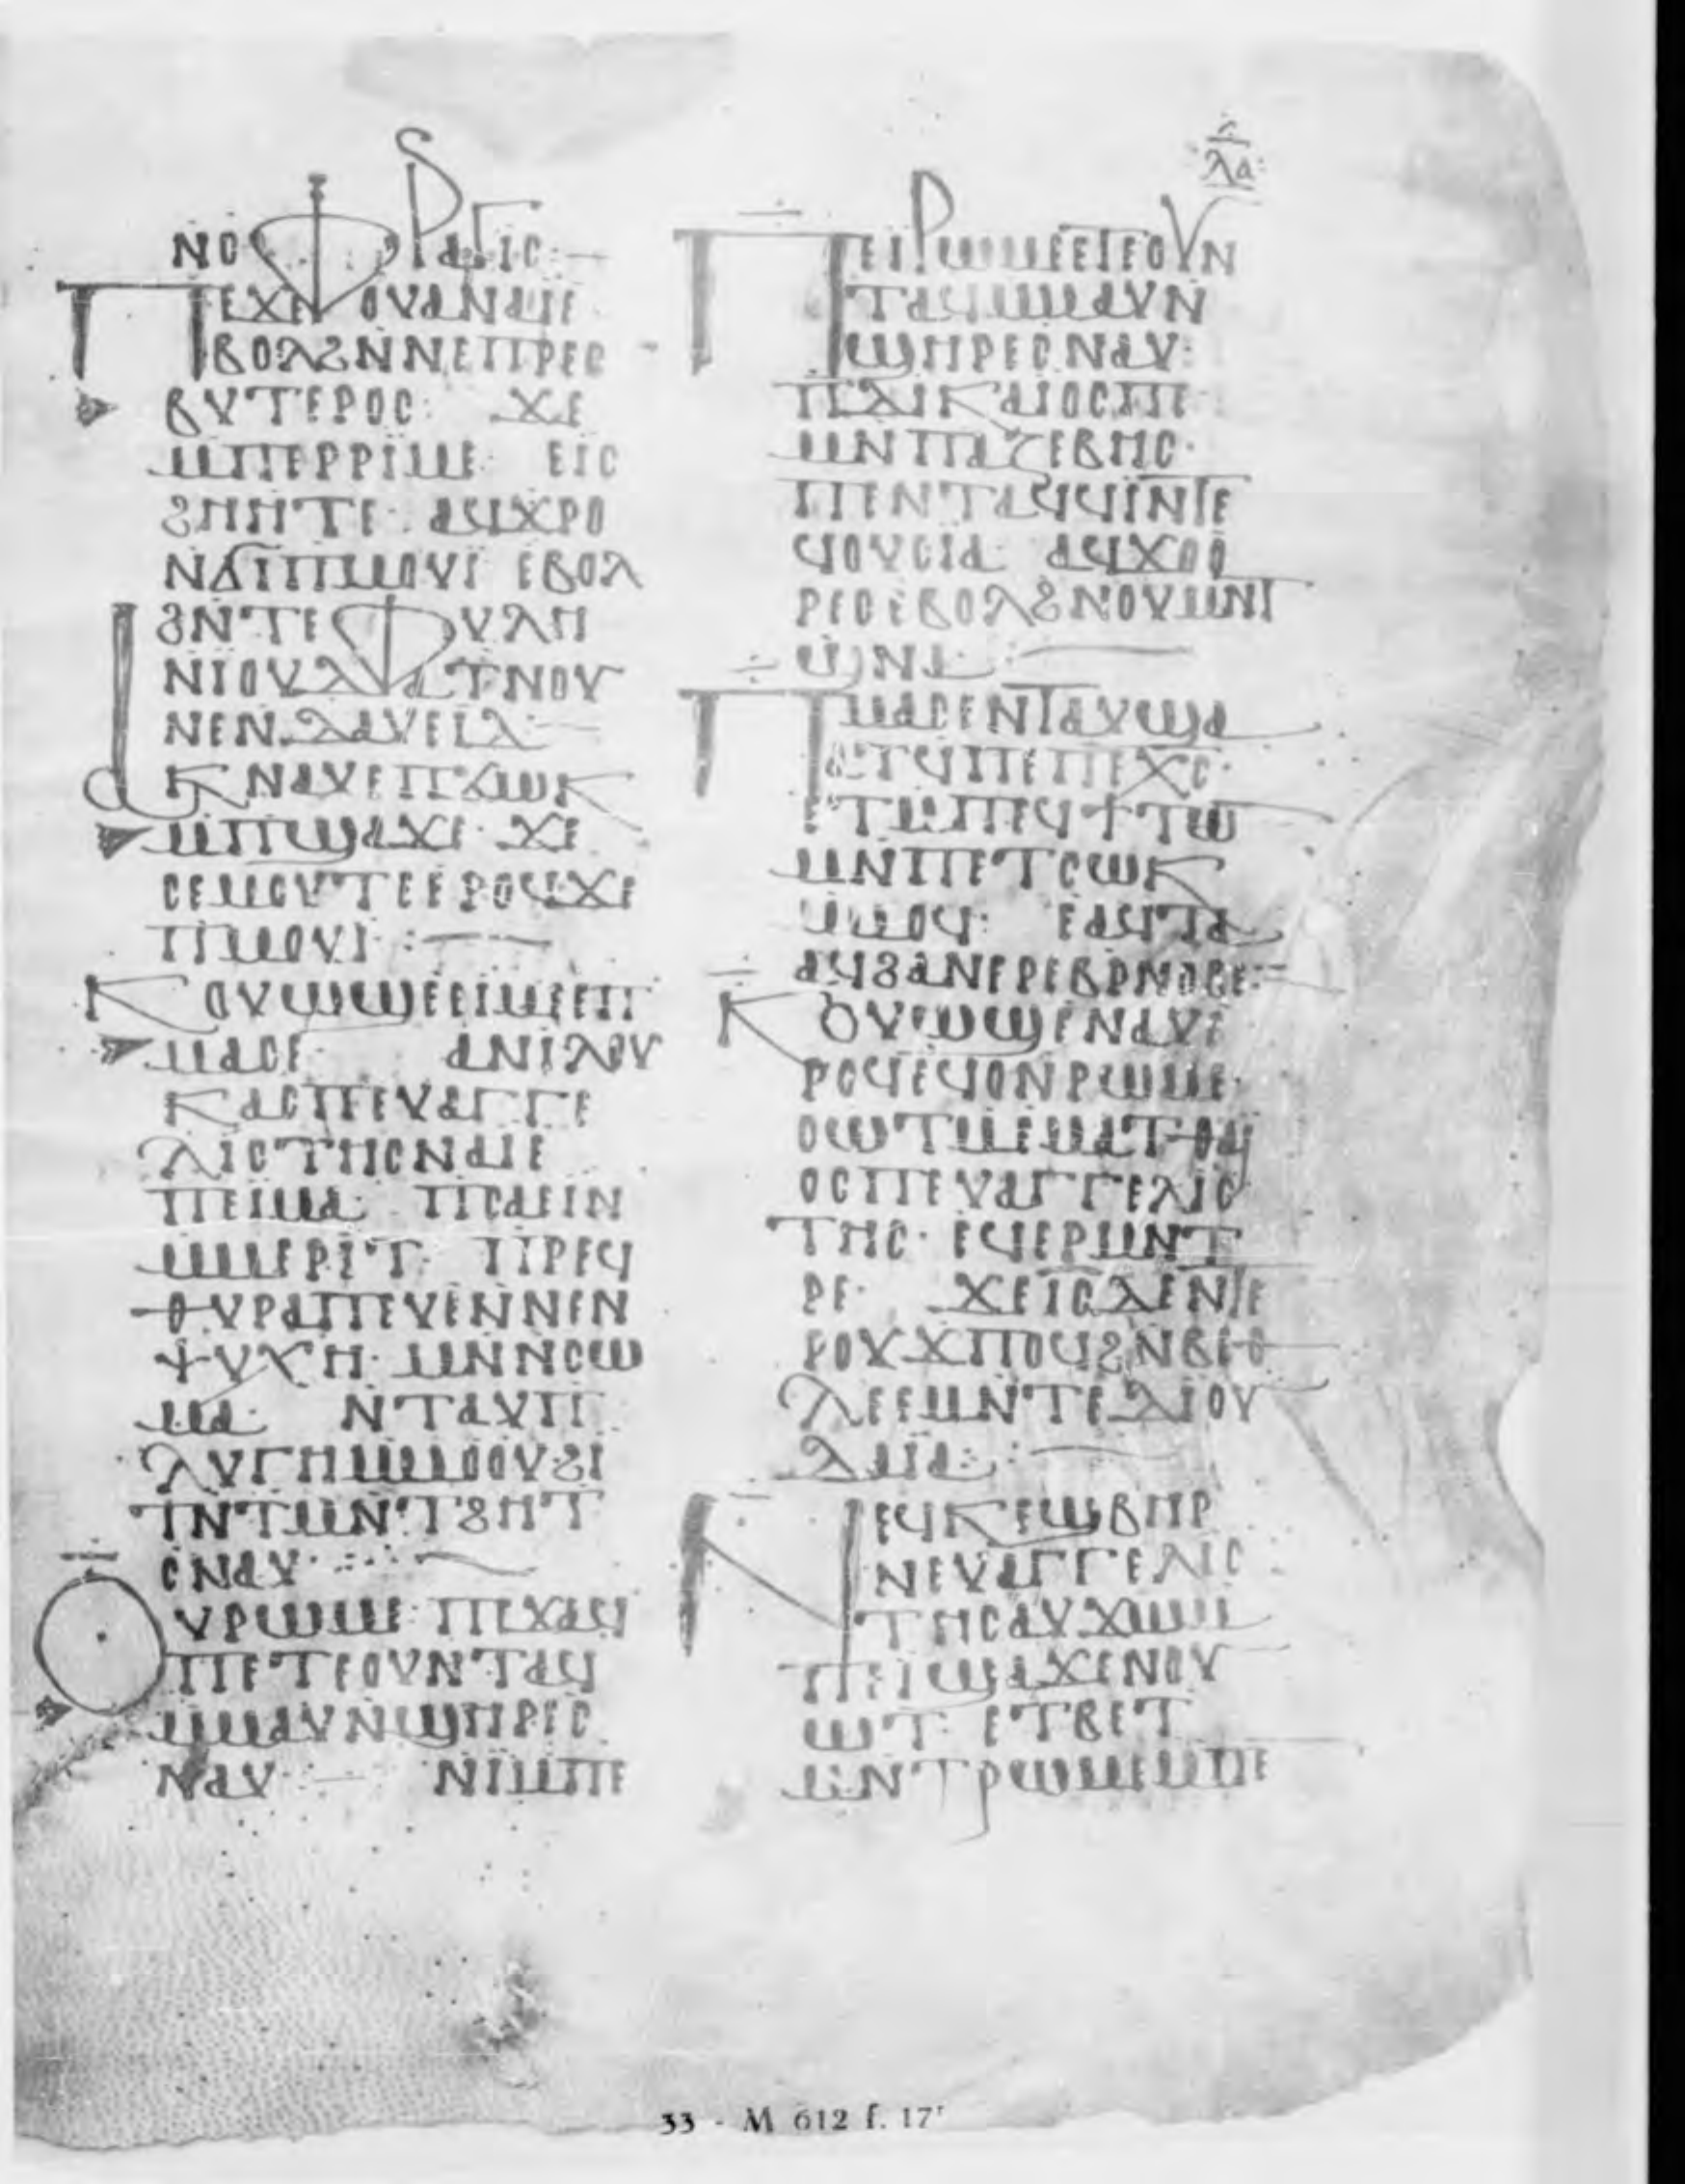 ⲗⲁ
ⲛⲟⲥⲫⲣⲁⲅⲓⲥ
ⲡⲉϫⲉⲓⲟⲩⲁⲛⲁⲓⲉ
ⲃⲟⲗϩⲛⲛⲉⲡⲣⲉⲥ
ⲃⲩⲧⲉⲣⲟⲥ: ϫⲉ
ⲙⲡⲉⲣⲣⲓⲙⲉ· ⲉⲓⲥ
ϩⲏⲏⲧⲉ· ⲁϥϫⲣⲟ
ⲛϭⲓⲡⲙⲟⲩⲓ ⲉⲃⲟⲗ
ϩⲛⲧⲉⲫⲩⲗⲏ
ⲛⲓⲟⲩⲇⲁ ⲧⲛⲟⲩ
ⲛⲉⲛⲇⲁⲩⲉⲓⲇ:
ⲁⲕⲛⲁⲩⲉⲡϫⲱⲕ
ⲙⲡϣⲁϫⲉ· ϫⲉ
ⲥⲉⲙⲟⲩⲧⲉⲉⲣⲟϥϫⲉ
ⲡⲙⲟⲩⲓ:
ⲕⲟⲩⲱϣⲉⲉⲓⲙⲉⲉⲡ
ⲙⲁⲥⲉ· ⲁⲛⲓⲗⲟⲩ
ⲕⲁⲥⲡⲉⲩⲁⲅⲅⲉ
ⲗⲓⲥⲧⲏⲥⲛⲁⲓⲉ
ⲡⲉⲓⲙⲁ· ⲡⲥⲁⲉⲓⲛ
ⲙⲙⲉⲣⲓⲧ· ⲡⲣⲉϥ
ⲑⲩⲣⲁⲡⲉⲩⲉⲛⲛⲉⲛ
ⲯⲩⲭⲏ· ⲙⲛⲛⲥⲱ
ⲙⲁ· ⲛⲧⲁⲩⲡ
ⲗⲩⲅⲏⲙⲙⲟⲟⲩϩⲓ
ⲧⲛⲧⲙⲛⲧϩⲏⲧ
ⲥⲛⲁⲩ·
ⲟⲩⲣⲱⲙⲉ· ⲡⲉϫⲁϥ
ⲡⲉⲧⲉⲟⲩⲛⲧⲁϥ
ⲙⲙⲁⲩⲛϣⲏⲣⲉⲥ
ⲛⲁⲩ· ⲛⲓⲙⲡⲉ
ⲡⲉⲓⲣⲱⲙⲉⲉⲧⲉⲟⲩⲛ
ⲧⲁϥⲙⲙⲁⲩⲛ
ϣⲏⲣⲉⲥⲛⲁⲩ:
ⲡⲇⲓⲕⲁⲓⲟⲥⲡⲉ
ⲙⲛⲡⲁⲥⲉⲃⲏⲥ·
ⲡⲉⲛⲧⲁϥϥⲓⲛⲧⲉ
ϥⲟⲩⲥⲓⲁ· ⲁϥϫⲟⲟ
ⲣⲉⲥⲉⲃⲟⲗϩⲛⲟⲩⲙⲛⲧ
ϣⲛⲁ:
ⲡⲙⲁⲥⲉⲛⲧⲁⲩϣⲁ
ⲁⲧϥⲡⲉⲡⲉⲭⲥ·
ⲉⲧⲙⲡⲉϥϯⲧⲱ
ⲙⲛⲡⲉⲧⲥⲱⲕ
ⲙⲙⲟϥ· ⲉⲁϥⲧⲁ
ⲁϥϩⲁⲛⲉⲣⲉϥⲣⲛⲟⲃⲉ:
ⲕⲟⲩⲱϣⲉⲛⲁⲩⲉ
ⲣⲟϥⲉϥⲟⲛⲣⲱⲙⲉ·
ⲥⲱⲧⲙⲉⲙⲁⲧⲑⲁⲓ
ⲟⲥⲡⲉⲩⲁⲅⲅⲉⲗⲓⲥ
ⲧⲏⲥ· ⲉϥⲉⲣⲙⲛⲧ
ⲣⲉ· ϫⲉⲓⲥⲇⲉⲛⲧⲉ
ⲣⲟⲩϫⲡⲟϥϩⲛⲃⲉⲑ
ⲗⲉⲉⲙⲛⲧⲉⲇⲓⲟⲩ
ⲇⲁⲓⲁ:
ⲛⲉϥⲕⲉϣⲃⲏⲣ
ⲛⲉⲩⲁⲅⲅⲉⲗⲓⲥ
ⲧⲏⲥⲁⲩϫⲱⲙ
ⲡⲉⲓϣⲁϫⲉⲛⲟⲩ
ⲱⲧ· ⲉⲧⲃⲉⲧ
ⲙⲛⲧⲣⲱⲙⲉⲙⲡⲉ
33 - M 612 f. 17ʳ